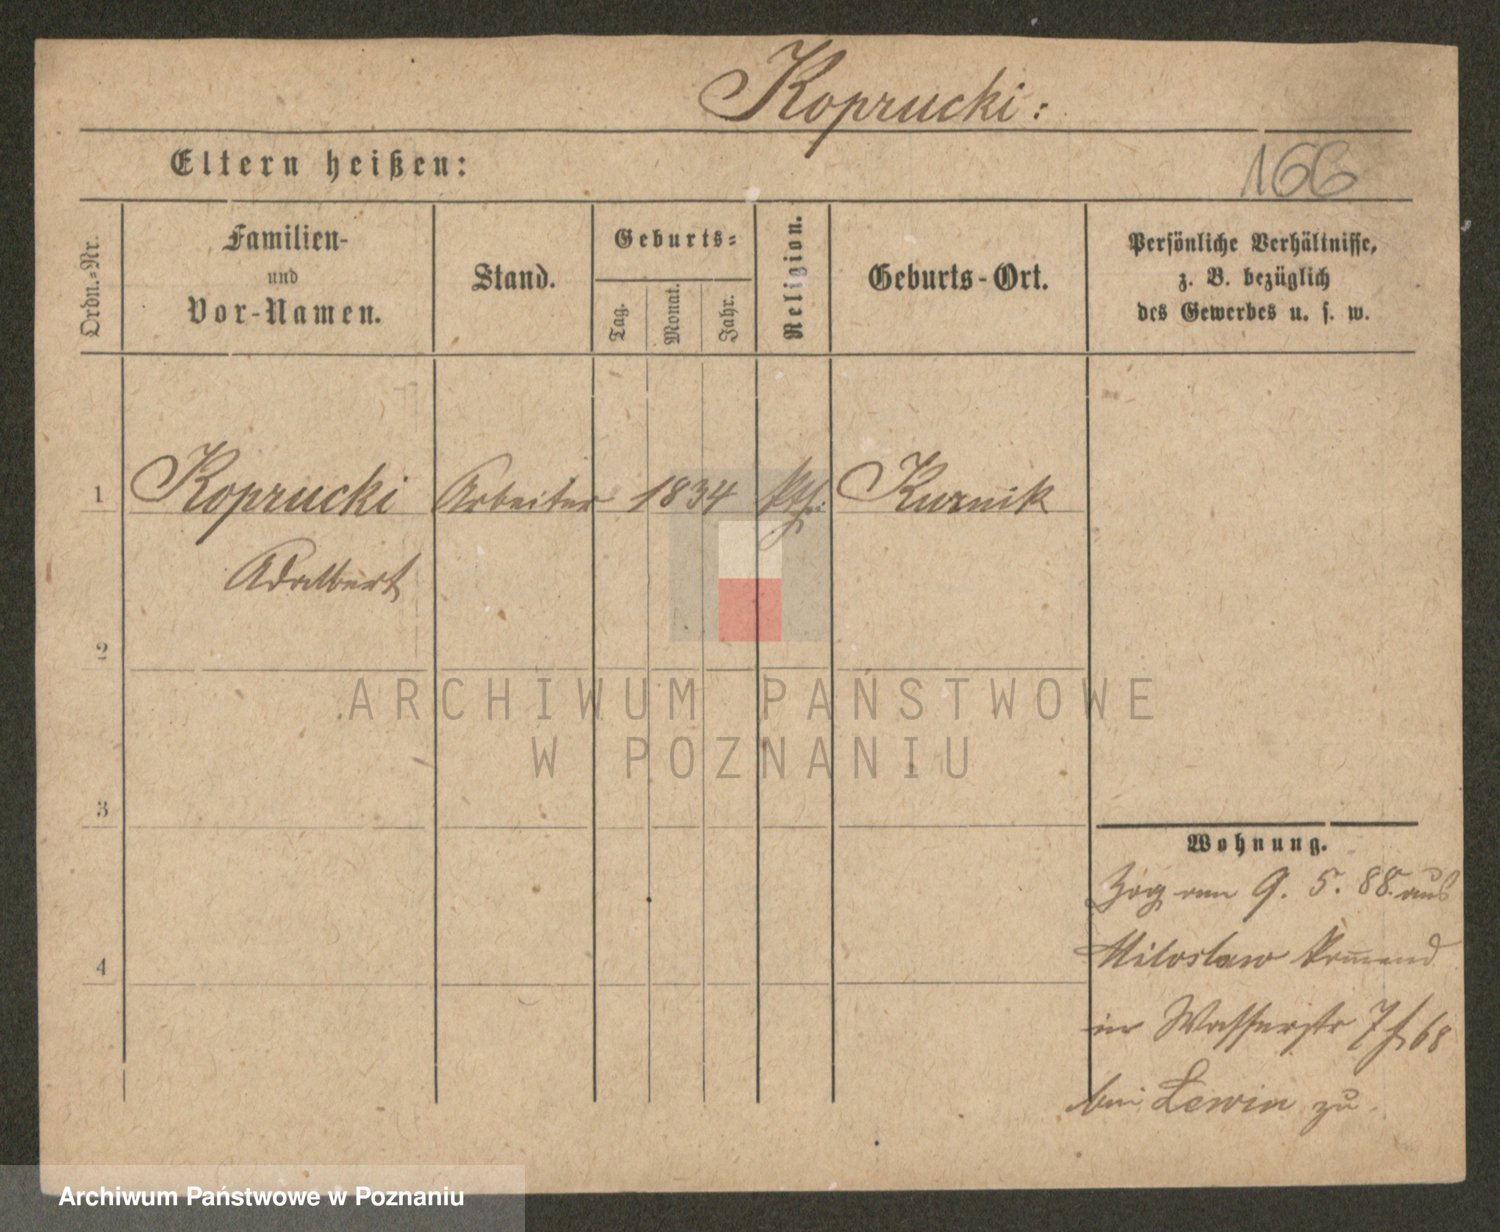 Koprucki:
Eltern heißen:
166
Ordn.=Nr.
Familien-
und
Vor-Namen.
Stand.
Geburts=
Tag.
Monat.
Jahr.
Religion.
Geburts-Ort.
Persönliche Verhältnisse,
z. B. bezüglich
des Gewerbes u. s. w.
1 Koprucki Arbeiter 1834 Kurnik
Adalbert
2
ARCHIWUM PAŃSTWOWE
W POZNANIU
3
Wohnung.
Zog am 9. 5. 88. aus
4
Miloslaw kommend
in Wasserstr 7
bei Lewin zu
Archiwum Państwowe w Poznaniu